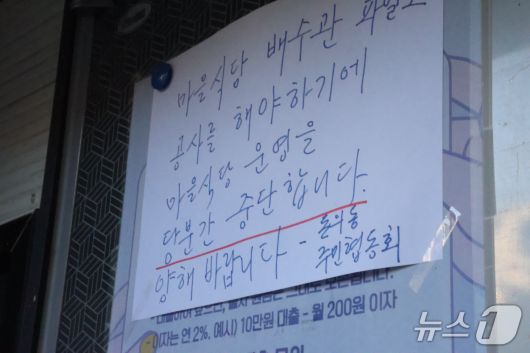 마을식당 배수관 파열로
공사를 해야하기에
마을식당 운영을
당분간 중단합니다.
양해 바랍니다 - 돈의동
주민협동회
이자는 연 2%, 예시) 10만원 대출 - 월 200원 이자
뉴스1